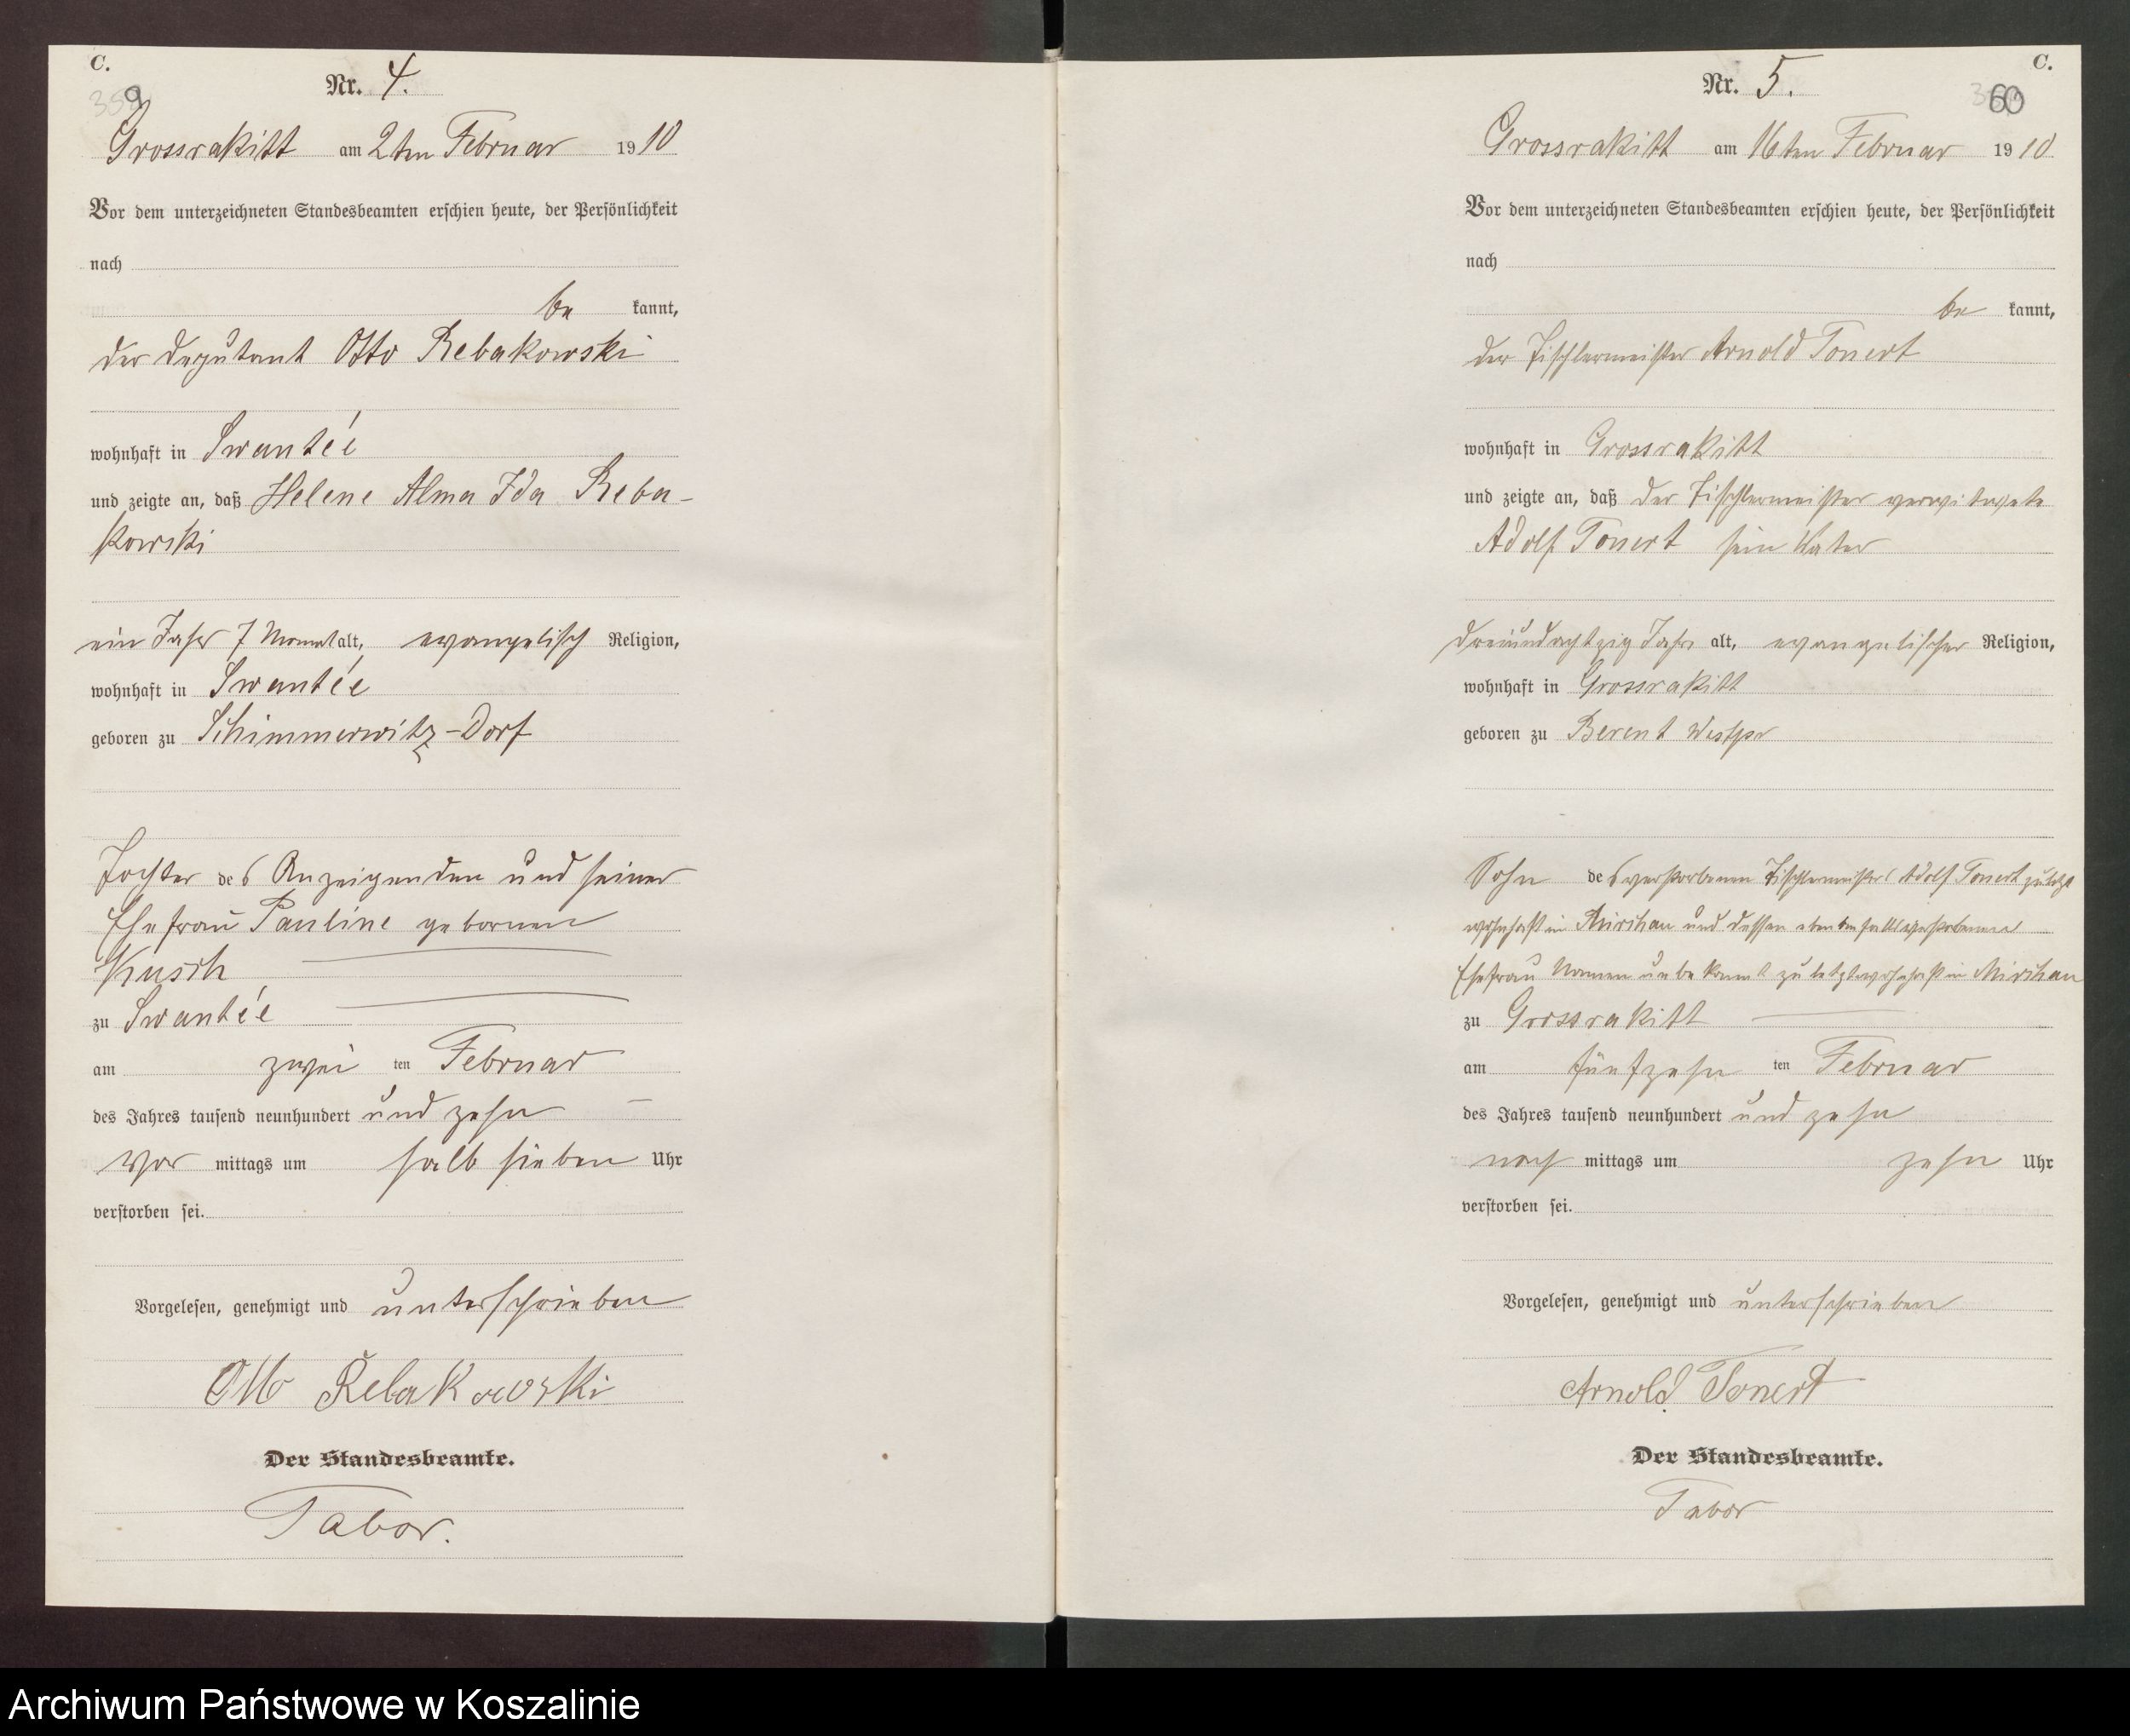 C.
Nr. 4.
359
Grossrakitt am 2ten Februar 1910
Vor dem unterzeichneten Standesbeamten erschien heute, der Persönlichkeit
nach
be kannt,
der Deputant Otto Rebakowski
wohnhaft in Swantée
und zeigte an, daß Helene Alma Ida Reba-
kowski
ein Jahr 7 Monat alt, evangelisch Religion,
wohnhaft in Swantée
geboren zu Schimmerwitz-Dorf
Tochter des Anzeigenden und seiner
Ehefrau Pauline gebornen
Kusch
zu Swantée
am zwei ten Februar
des Jahres tausend neunhundert und zehn
vor mittags um halb sieben Uhr
verstorben sei.
Vorgelesen, genehmigt und unterschrieben
Otto Rebakowski
Der Standesbeamte.
Tabor.
C.
Nr. 5.
60
Grossrakitt am 16ten Februar 1910
Vor dem unterzeichneten Standesbeamten erschien heute, der Persönlichkeit
nach
be kannt,
der Tischlermeister Arnold Tonert
wohnhaft in Grossrakitt
und zeigte an, daß der Tischlermeister verwitwete
Adolf Tonert sein Vater
dreiundachtzig Jahr alt, evangelischer Religion,
wohnhaft in Grossrakitt
geboren zu Berent Westpr
Sohn des verstorbenen Tischlermeisters Adolf Tonert zuletzt
wohnhaft in Mirchau und dessen ebenfalls verstorbenen
Ehefrau Namen unbekannt zuletzt wohnhaft in Mirchau
zu Grossrakitt
am fünfzehn ten Februar
des Jahres tausend neunhundert und zehn
nach mittags um zehn Uhr
verstorben sei.
Vorgelesen, genehmigt und unterschrieben
Arnold Tonert
Der Standesbeamte.
Tabor
Archiwum Państwowe w Koszalinie